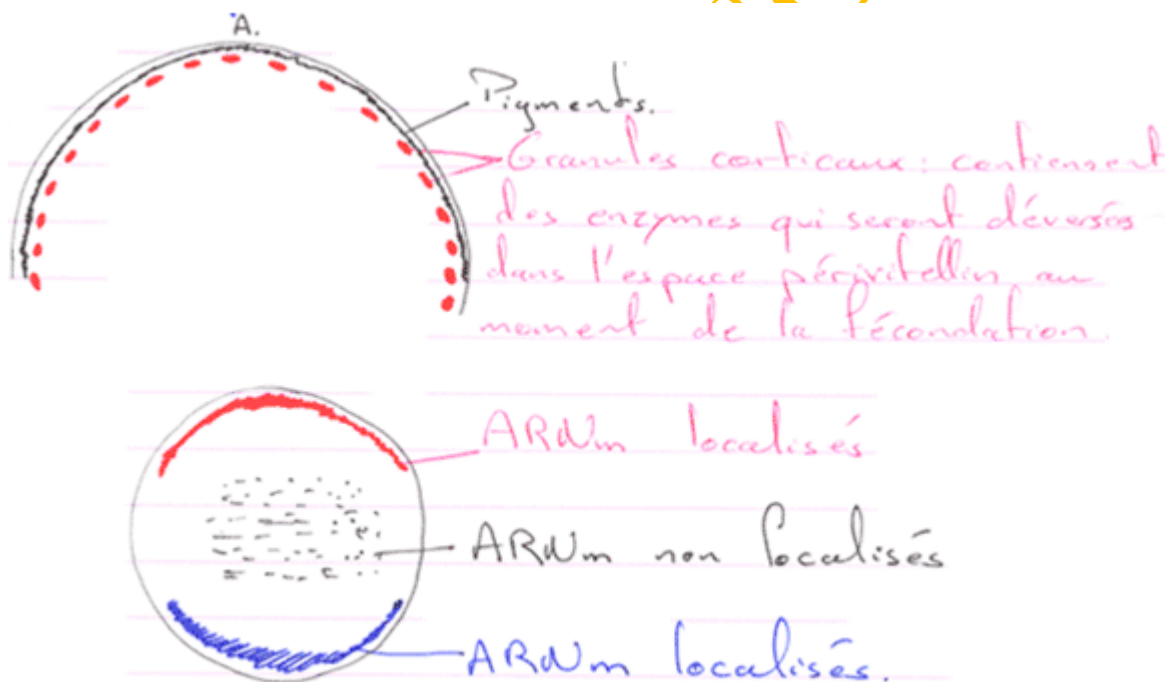 A.
Pigments.
Granules corticaux : contiennent
des enzymes qui seront déversées
dans l'espace périvitellin au
moment de la fécondation.
ARNm localisés
ARNm non localisés
ARNm localisés.